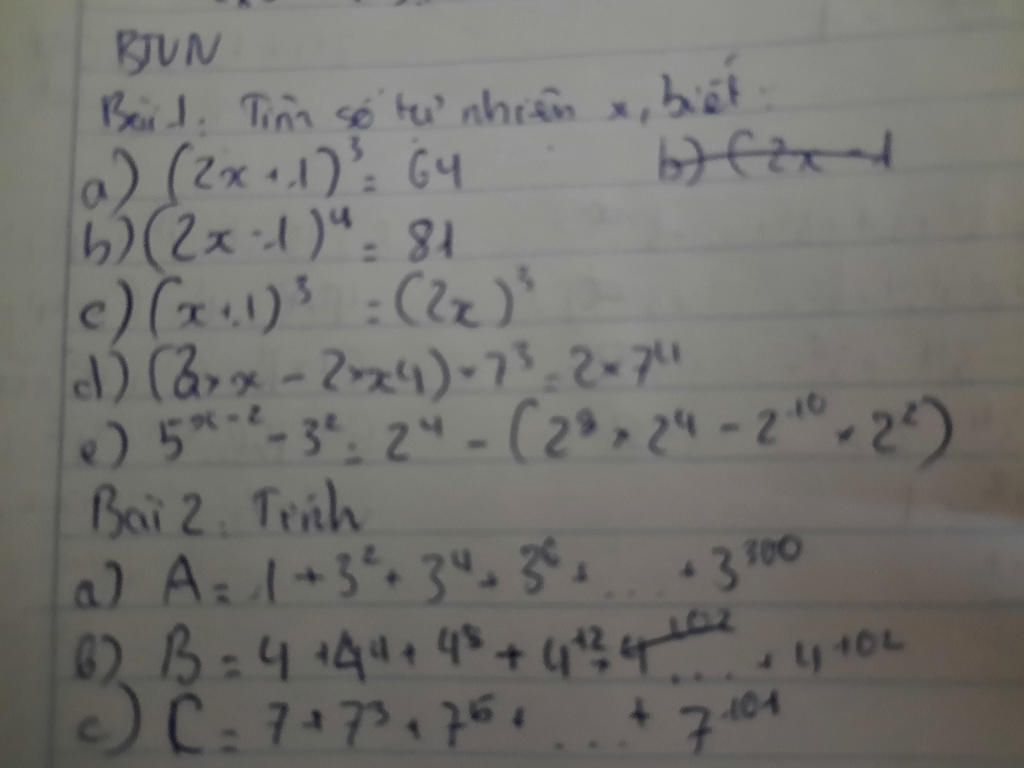 BTVN
Bài 1: Tìm số tự nhiên x, biết:
a) (2x+1)³ = 64
b) (2x-1
b) (2x-1)⁴ = 81
c) (x+1)³ = (2x)³
d) (2×x - 2××4) × 7³ = 2×7⁴
e) 5ˣ⁻² - 3² = 2⁴ - (2⁸ × 2⁴ - 2¹⁰ × 2²)
Bài 2: Tính
a) A = 1 + 3² + 3⁴ + 3⁶ + ... + 3³⁰⁰
b) B = 4 + 4⁴ + 4⁸ + 4¹² + ... + 4¹⁰²
c) C = 7 + 7³ + 7⁵ + ... + 7¹⁰¹